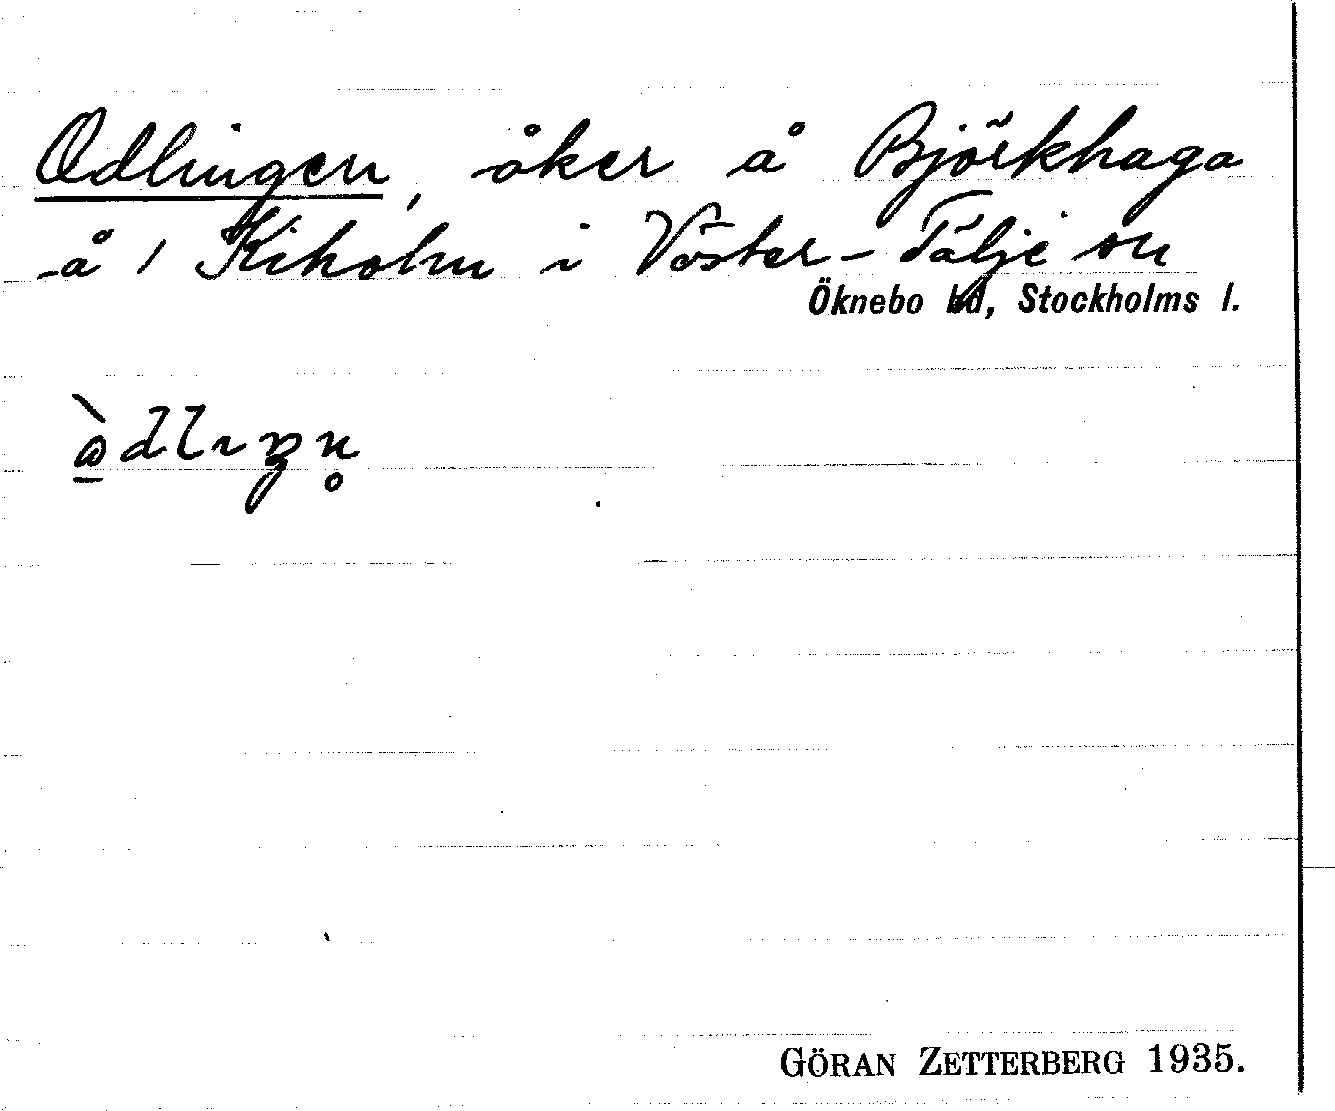 Odlingen, åker å Björkhaga
å 1 Kiholm i Väster-Tälje sn
Öknebo hd, Stockholms l.
GÖRAN ZETTERBERG 1935.